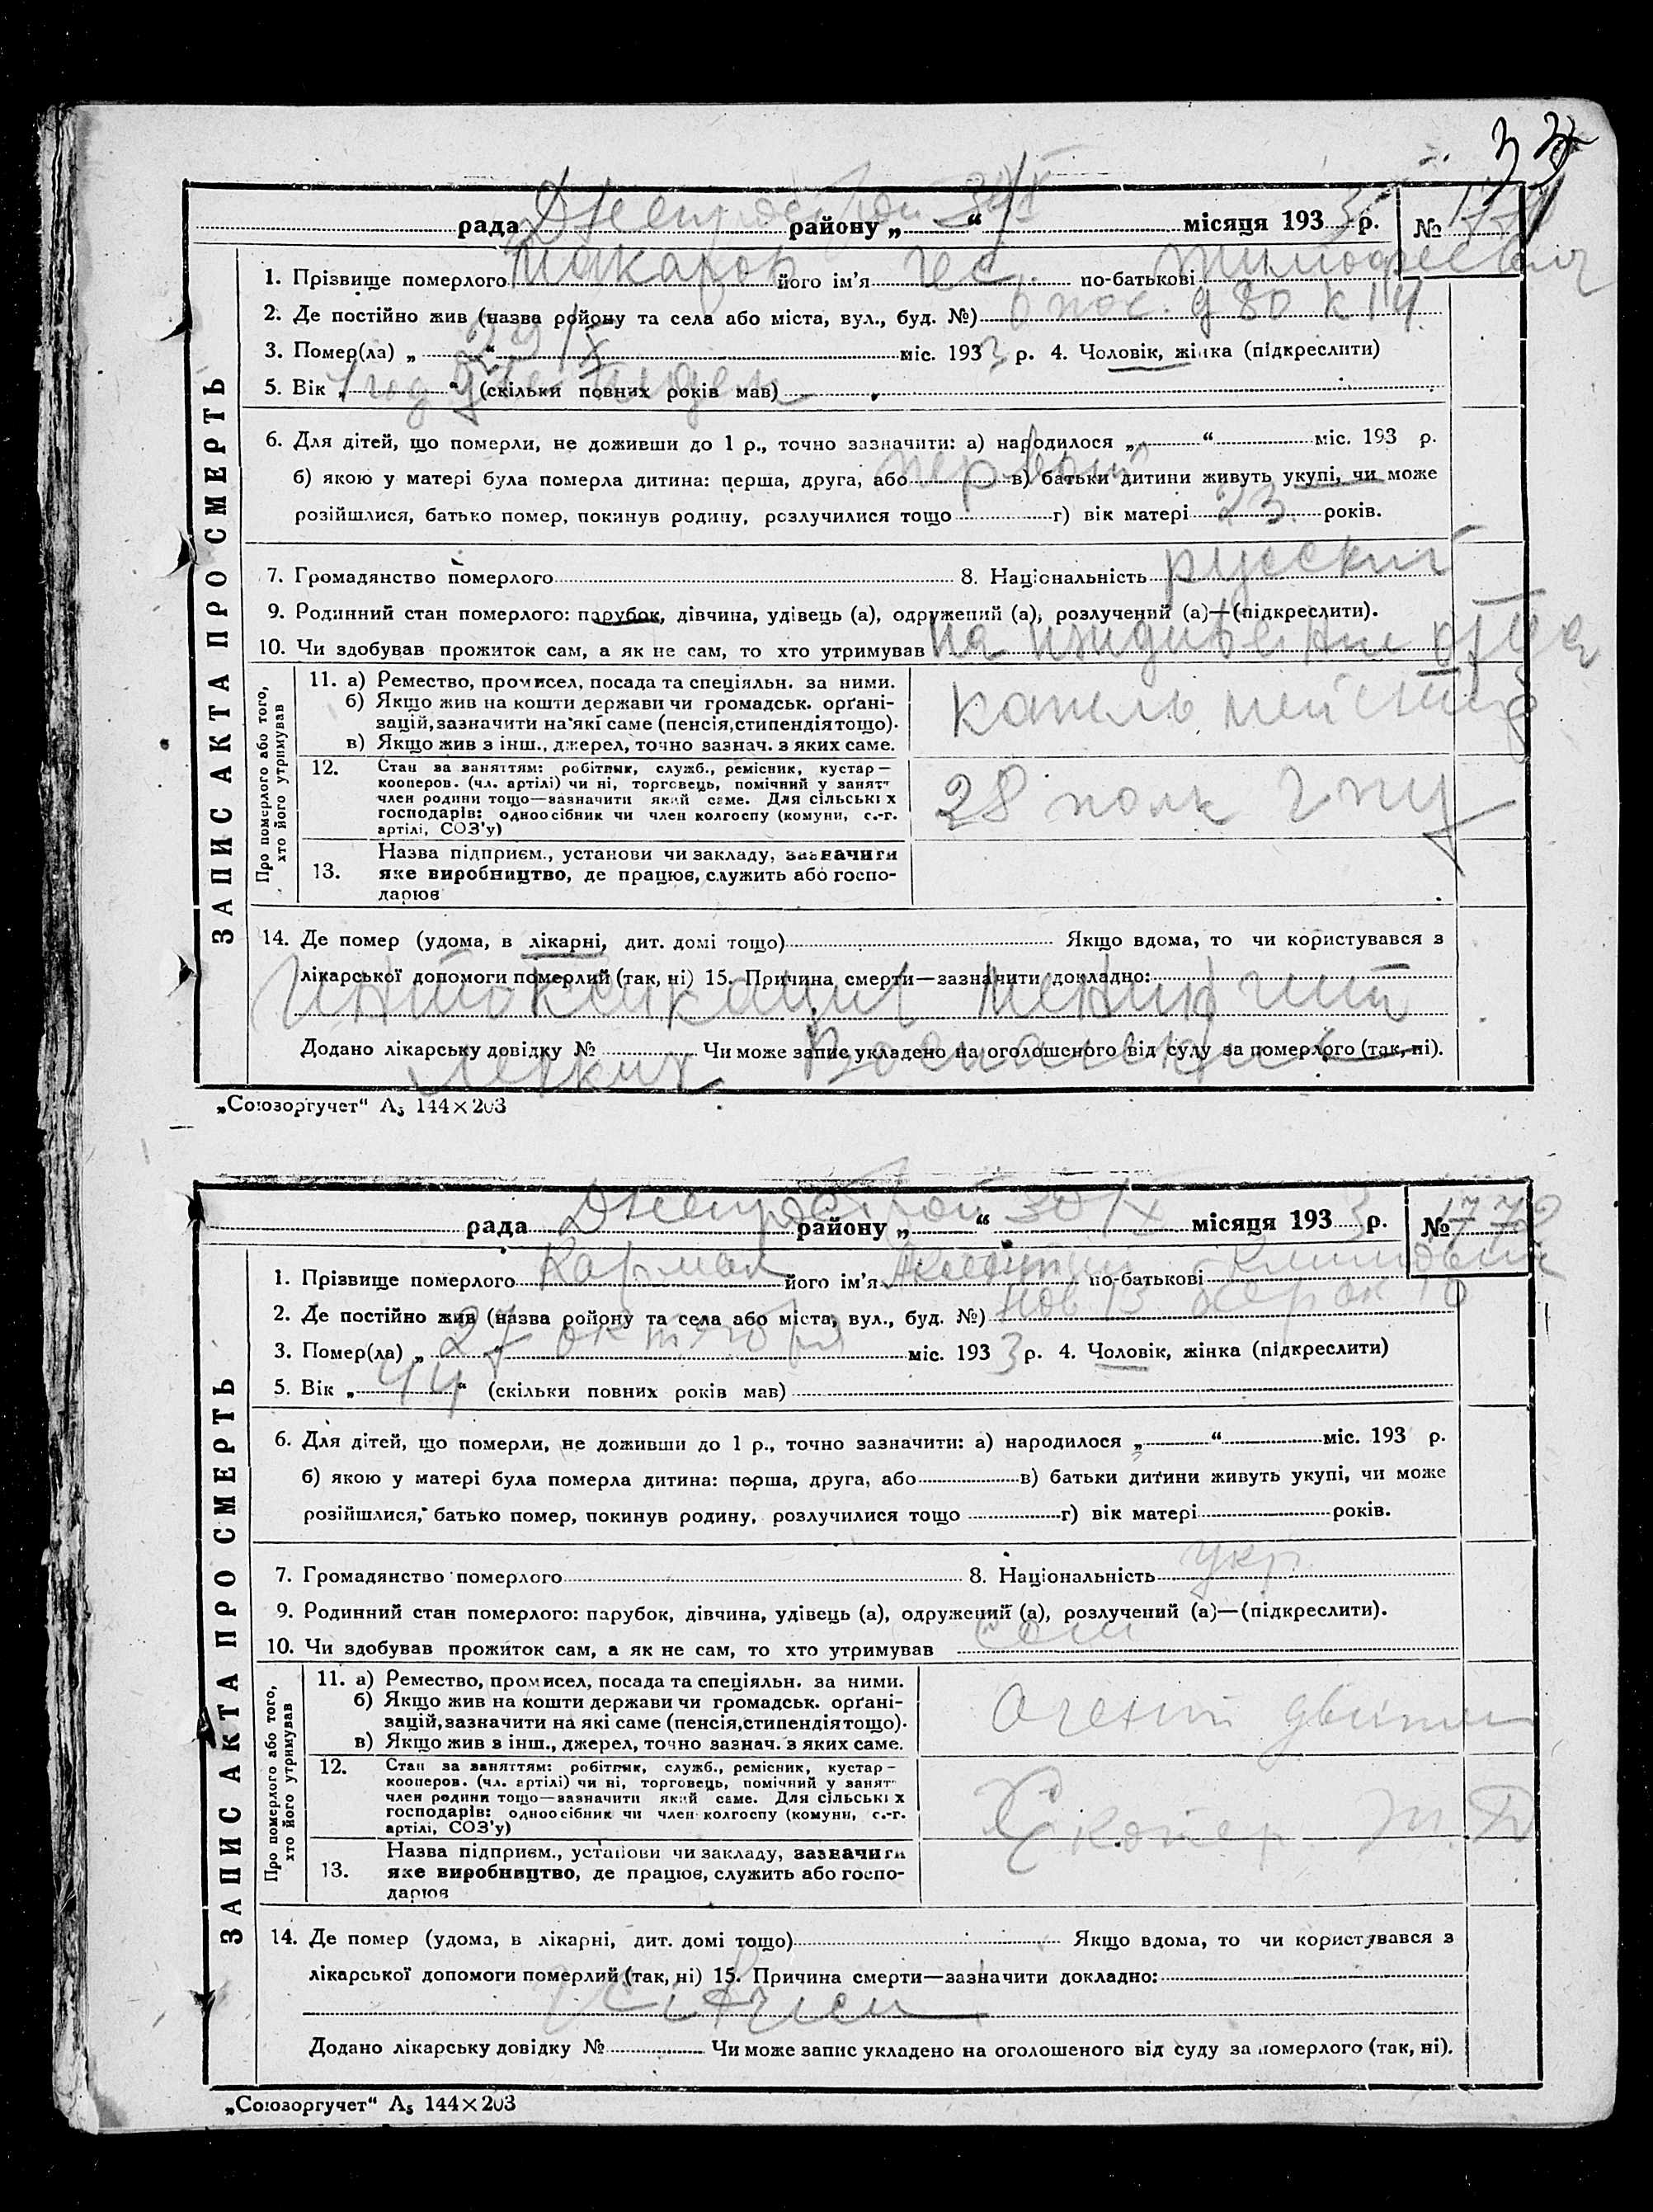 33
рада Днепрострой району „ 30/X “ місяця 1933 р. № 177
1. Прізвище померлого Макаров його ім'я по-батькові Тимофеевич
2. Де постійно жив (назва ройону та села або міста, вул., буд. №) 6 пос. д 80 к 14
3. Помер(ла) „ 29/X “ міс. 1933 р. 4. Чоловік, жінка (підкреслити)
5. Вік „ 1 год “ (скільки повних років мав)
6. Для дітей, що померли, не доживши до 1 р., точно зазначити: а) народилося „ “ міс. 193 р.
б) якою у матері була померла дитина: перша, друга, або первый в) батьки дитини живуть укупі, чи може
розійшлися, батько помер, покинув родину, розлучилися тощо г) вік матері 23 років.
7. Громадянство померлого 8. Національність русский
9. Родинний стан померлого: парубок, дівчина, удівець (а), одружений (а), розлучений (а)—(підкреслити).
10. Чи здобував прожиток сам, а як не сам, то хто утримував на иждивении отца
ЗАПИС АКТА ПРО СМЕРТЬ
Про померлого або того, хто його утримував
11. а) Ремество, промисел, посада та спеціяльн. за ними.
б) Якщо жив на кошти держави чи громадськ. орґані-
зацій, зазначити на які саме (пенсія, стипендія тощо).
в) Якщо жив з інш., джерел, точно зазнач. з яких саме.
капельмейстер
12. Стан за заняттям: робітник, служб., ремісник, кустар—
кооперов. (чл. артілі) чи ні, торговець, помічний у занят-
член родини тощо—зазначити який саме. Для сільських
господарів: одноосібник чи член колгоспу (комуни, с.-г.
артілі, СОЗ'у)
28 полк ГПУ
13. Назва підприєм., установи чи закладу, зазначити
яке виробництво, де працює, служить або госпо-
дарює
14. Де помер (удома, в лікарні, дит. домі тощо) Якщо вдома, то чи користувався з
лікарської допомоги померлий (так, ні) 15. Причина смерти—зазначити докладно:
Интоксикация менингит
Додано лікарську довідку № Чи може запис укладено на оголошеного від суду за померлого (так, ні).
Воспаление легких
„Союзоргучет“ А5 144×203
рада Днепрострой району „ 30/X “ місяця 1933 р. № 1770
1. Прізвище померлого Кармал його ім'я по-батькові
2. Де постійно жив (назва ройону та села або міста, вул., буд. №)
3. Помер(ла) „ 27 октября міс. 1933 р. 4. Чоловік, жінка (підкреслити)
5. Вік „ 44 “ (скільки повних років мав)
6. Для дітей, що померли, не доживши до 1 р., точно зазначити: а) народилося „ “ міс. 193 р.
б) якою у матері була померла дитина: перша, друга, або в) батьки дитини живуть укупі, чи може
розійшлися, батько помер, покинув родину, розлучилися тощо г) вік матері років.
7. Громадянство померлого 8. Національність укр
9. Родинний стан померлого: парубок, дівчина, удівець (а), одружений (а), розлучений (а)—(підкреслити).
10. Чи здобував прожиток сам, а як не сам, то хто утримував сам
ЗАПИС АКТА ПРО СМЕРТЬ
Про померлого або того, хто його утримував
11. а) Ремество, промисел, посада та спеціяльн. за ними.
б) Якщо жив на кошти держави чи громадськ. орґані-
зацій, зазначити на які саме (пенсія, стипендія тощо).
в) Якщо жив в інш., джерел, точно зазнач. з яких саме.
12. Стан за заняттям: робітник, служб., ремісник, кустар—
кооперов. (чл. артілі) чи ні, торговець, помічний у занят-
член родини тощо—зазначити який саме. Для сільських
господарів: одноосібник чи член колгоспу (комуни, с.-г.
артілі, СОЗ'у)
13. Назва підприєм., установи чи закладу, зазначити
яке виробництво, де працює, служить або госпо-
дарює
14. Де помер (удома, в лікарні, дит. домі тощо) Якщо вдома, то чи користувався з
лікарської допомоги померлий (так, ні) 15. Причина смерти—зазначити докладно:
Додано лікарську довідку № Чи може запис укладено на оголошеного від суду за померлого (так, ні).
„Союзоргучет“ А5 144×203